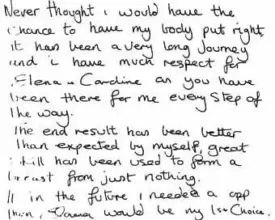 Never thought i would have the
chance to have my body put right
it has been a very long Journey
and i have much respect for
Elena + Caroline as you have
been there for me every Step of
the way.
The end result has been better
than expected by myself, great
skill has been used to form a
breast from just nothing.
If in the future i needed a opp
then would be my 1st Choice.